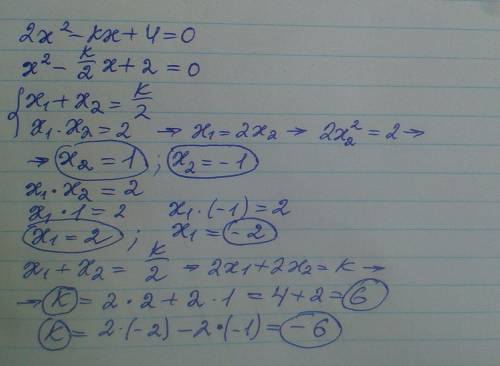 2x² - kx + 4 = 0
x² - k/2 x + 2 = 0
{ x₁ + x₂ = k/2
x₁ · x₂ = 2 → x₁ = 2x₂ → 2x₂² = 2 →
→ x₂ = 1 ; x₂ = -1
x₁ · x₂ = 2
x₁ · 1 = 2 x₁ · (-1) = 2
x₁ = 2 ; x₁ = -2
x₁ + x₂ = k/2 → 2x₁ + 2x₂ = k →
→ k = 2 · 2 + 2 · 1 = 4 + 2 = 6
k = 2 · (-2) - 2 · (-1) = -6